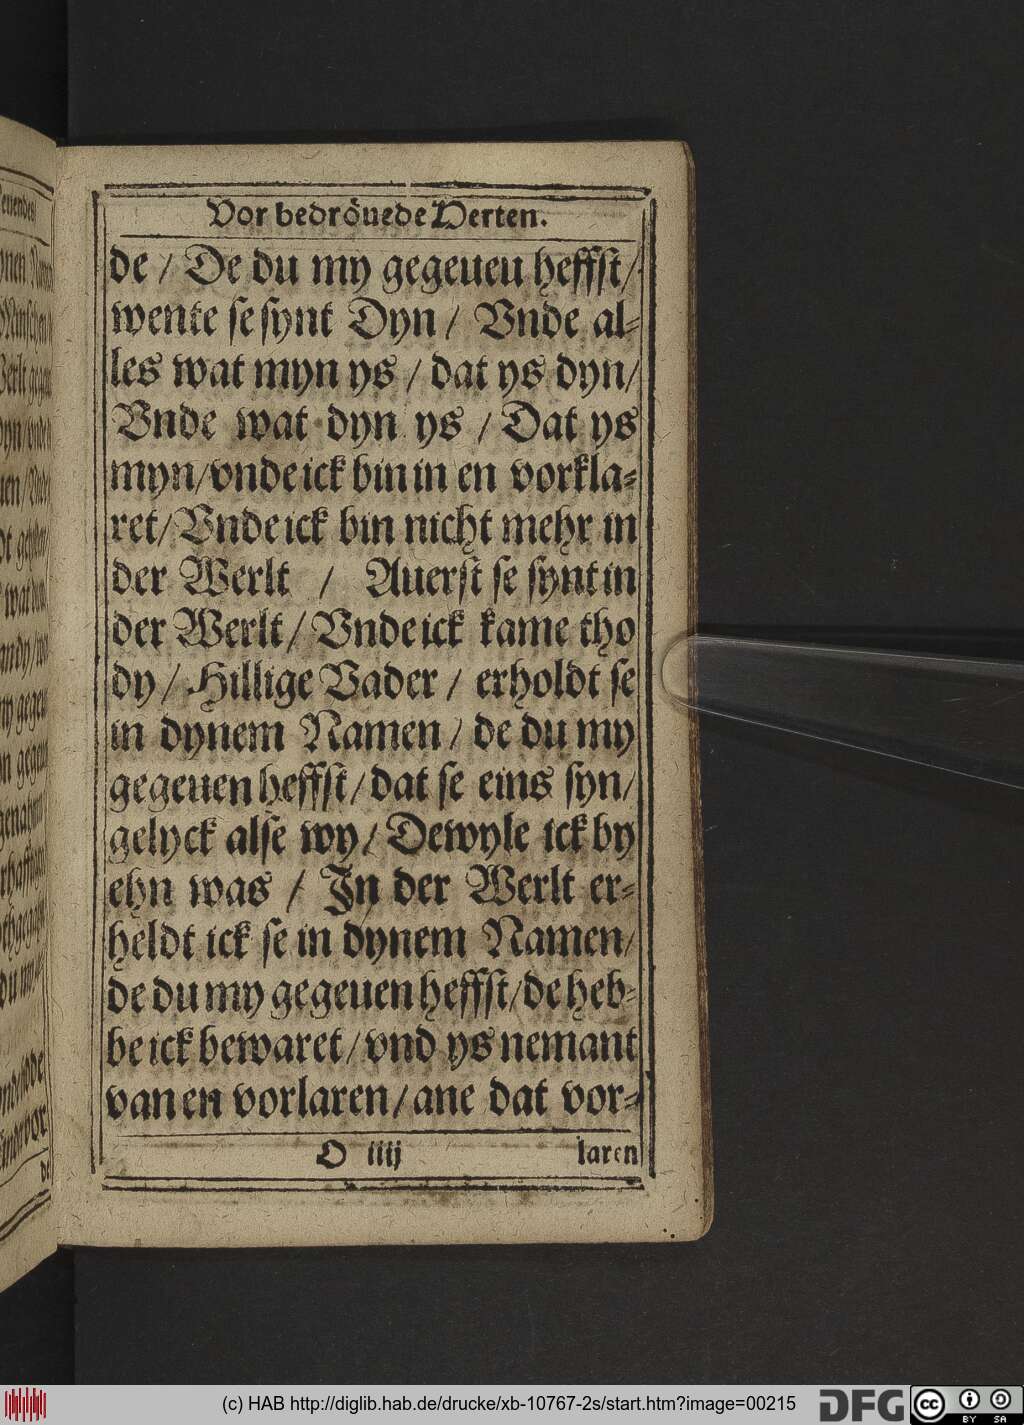 Vor bedröuede Herten.
de / De du my gegeueu heffst/
wente se synt Dyn / Vnde al-
les wat myn ys / dat ys dyn/
Vnde wat dyn ys / Dat ys
myn/vnde ick bin in en vorkla-
ret/Vnde ick bin nicht mehr in
der Werlt / Auerst se synt in
der Werlt/ Vnde ick kame tho
dy / Hillige Vader / erholdt se
in dynem Namen / de du my
gegeuen heffst/dat se eins syn/
gelyck alse wy/ Dewyle ick by
ehn was / Jn der Werlt er-
heldt ick se in dynem Namen/
de du my gegeuen heffst/de heb-
be ick bewaret/vnd ys nemant
van en vorlaren/ane dat vor-
O iiij laren
(c) HAB http://diglib.hab.de/drucke/xb-10767-2s/start.htm?image=00215
DFG
cc BY SA